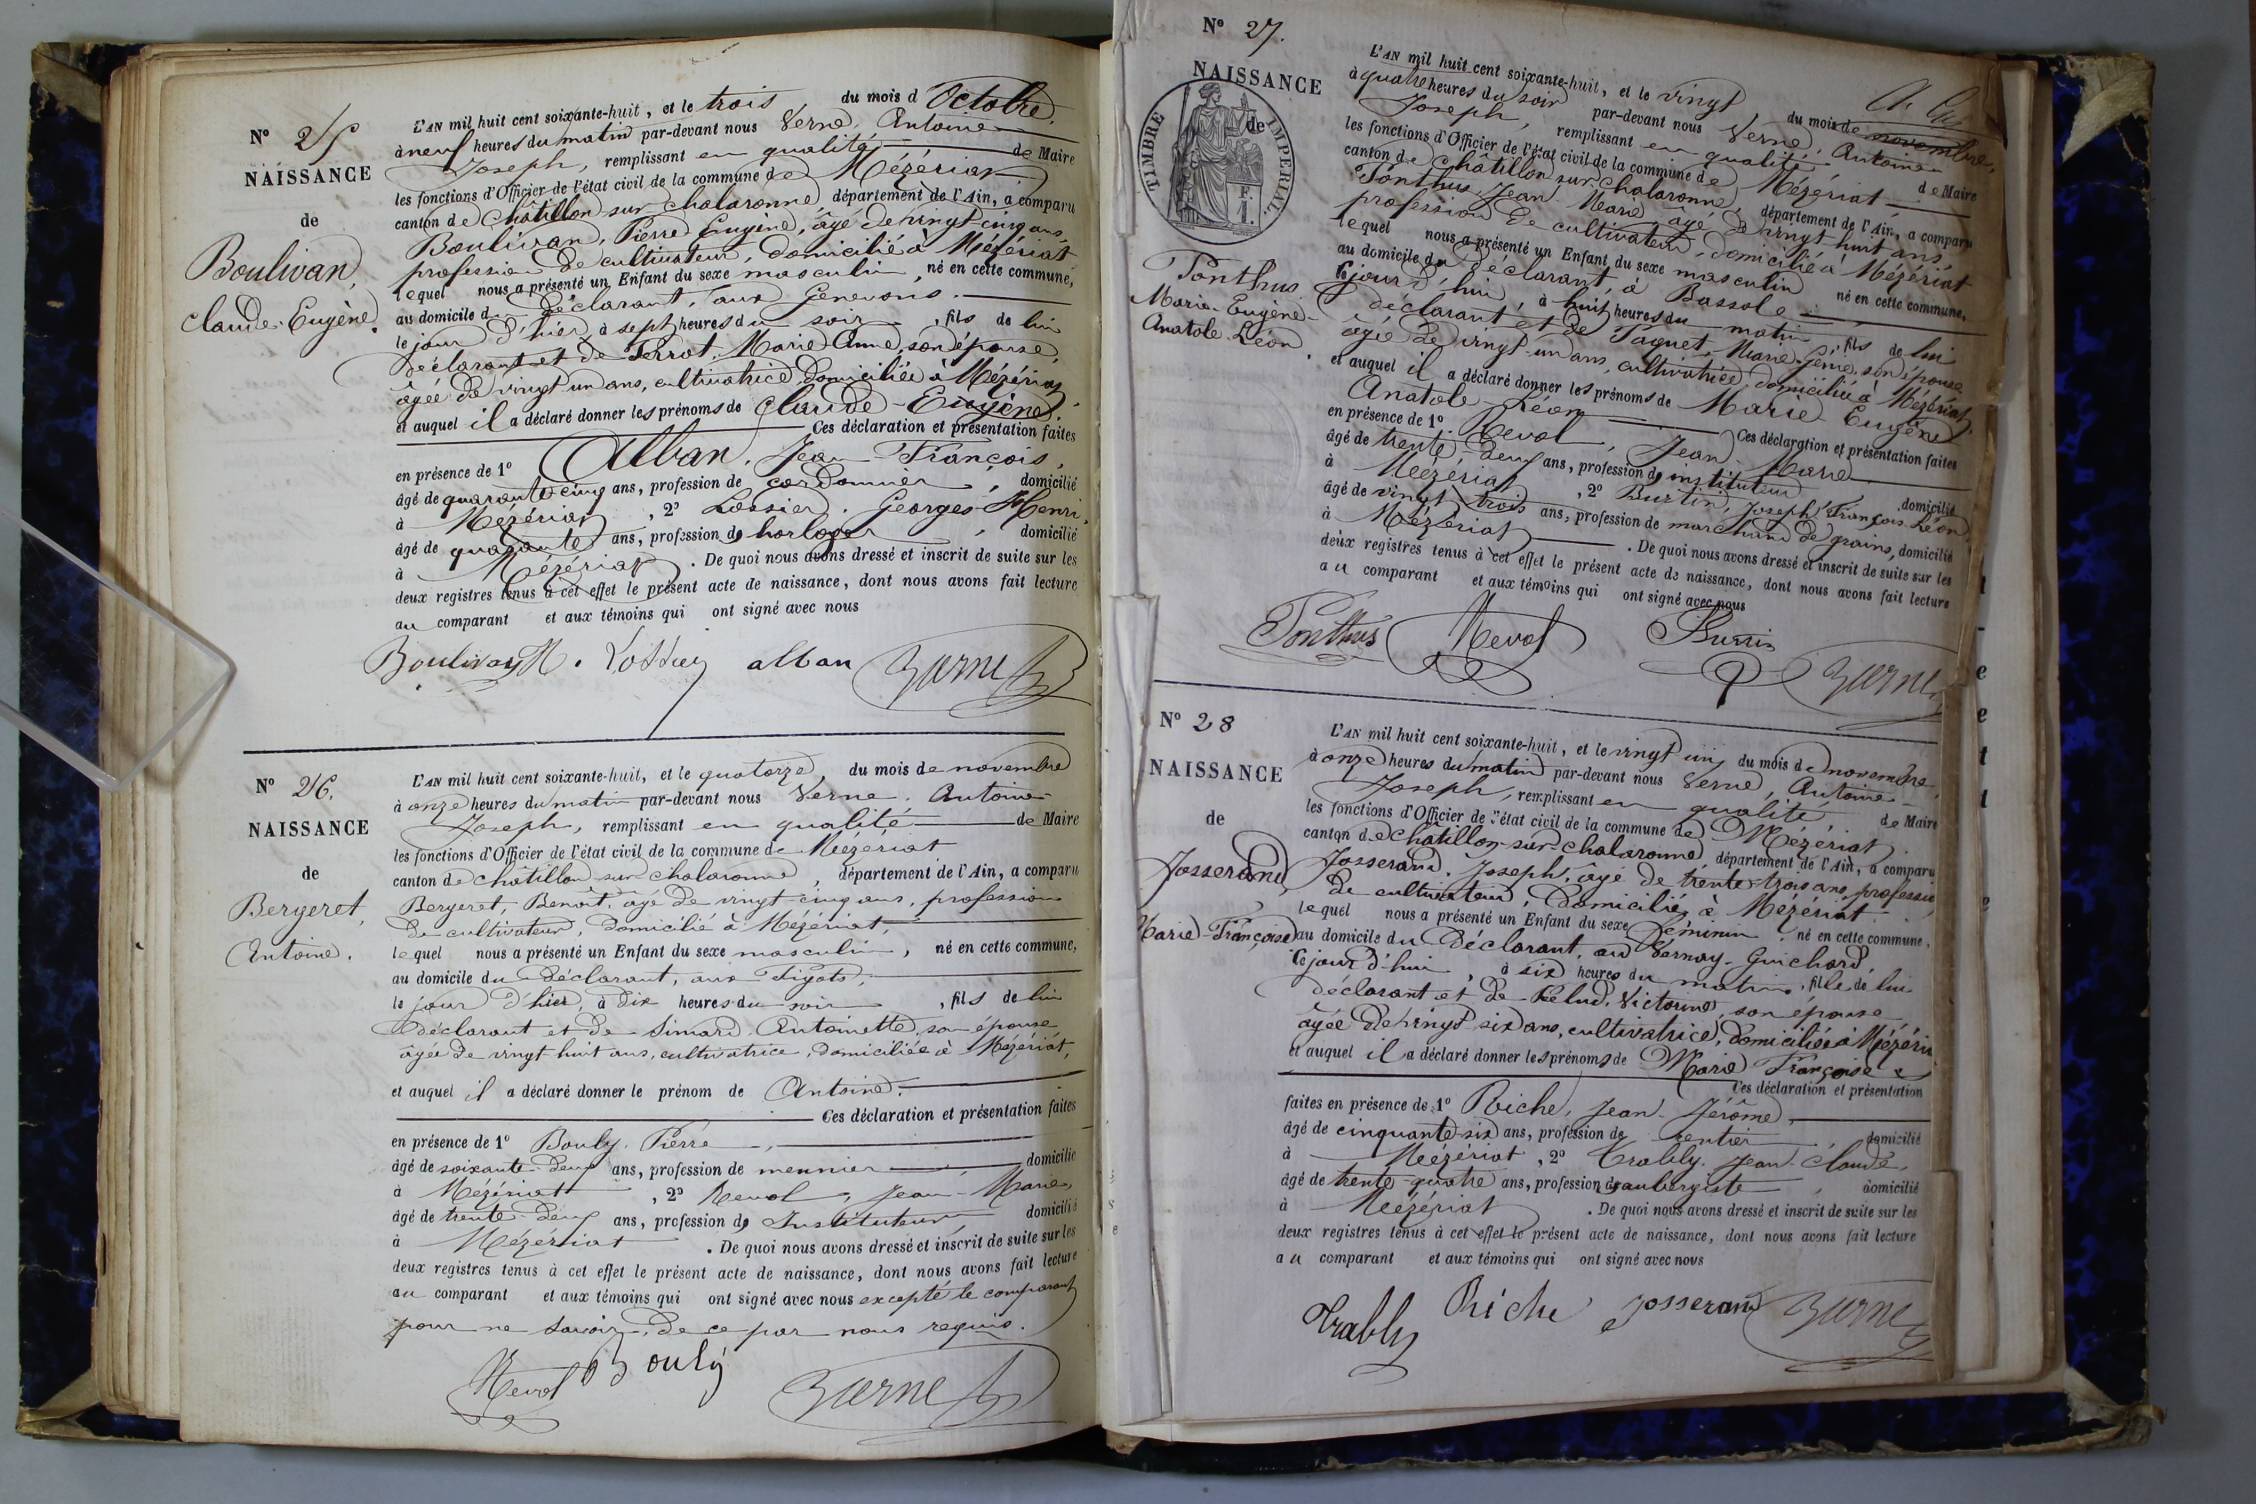 N° 25
NAISSANCE
de
Boulivan,
Claude-Eugène.
L'AN mil huit cent soixante-huit, et le trois du mois d'Octobre,
à neuf heures du matin par-devant nous Verne, Antoine
Joseph, remplissant en qualité de Maire
les fonctions d'Officier de l'état civil de la commune de Mézériat
canton de Châtillon sur Chalaronne, département de l'Ain, a comparu
Boulivan, Pierre Eugène, âgé de vingt cinq ans,
profession de cultivateur, domicilié à Mézériat
lequel nous a présenté un Enfant du sexe masculin, né en cette commune,
au domicile du déclarant, aux Genevons.
le jour d'hier, à sept heures du soir, fils de lui
déclarant et de Perrat, Marie Anne, son épouse,
âgée de vingt un ans, cultivatrice, domiciliée à Mézériat,
et auquel il a déclaré donner les prénoms de Claude-Eugène.
Ces déclaration et présentation faites
en présence de 1° Alban, Jean-François,
âgé de quarante cinq ans, profession de cordonnier, domicilié
à Mézériat, 2° Lossier, Georges-Henri,
âgé de quarante ans, profession de horloger, domicilié
à Mézériat. De quoi nous avons dressé et inscrit de suite sur les
deux registres tenus à cet effet le présent acte de naissance, dont nous avons fait lecture
au comparant et aux témoins qui ont signé avec nous
Boulivan alban Verne
N° 26.
NAISSANCE
de
Bergeret,
Antoine.
L'AN mil huit cent soixante-huit, et le quatorze, du mois de novembre
à onze heures du matin par-devant nous Verne, Antoine
Joseph, remplissant en qualité de Maire
les fonctions d'Officier de l'état civil de la commune de Mézériat
canton de Châtillon sur Chalaronne, département de l'Ain, a comparu
Bergeret, Benoit, âgé de vingt-cinq ans, profession
de cultivateur, domicilié à Mézériat,
lequel nous a présenté un Enfant du sexe masculin, né en cette commune,
au domicile du déclarant, aux Figots,
le jour d'hier, à dix heures du soir, fils de lui
déclarant et de Simard, Antoinette, son épouse
âgée de vingt huit ans, cultivatrice, domiciliée à Mézériat,
et auquel il a déclaré donner le prénom de Antoine.
Ces déclaration et présentation faites
en présence de 1° Bouly, Pierre,
âgé de soixante-deux ans, profession de meunier, domicilié
à Mézériat, 2° Revol, Jean-Marie,
âgé de trente-deux ans, profession de Instituteur domicilié
à Mézériat. De quoi nous avons dressé et inscrit de suite sur les
deux registres tenus à cet effet le présent acte de naissance, dont nous avons fait lecture
au comparant et aux témoins qui ont signé avec nous excepté le comparant
pour ne savoir, de ce par nous requis.
Revol Bouly Verne
N° 27.
NAISSANCE
de
TIMBRE IMPERIAL
F. 1.
Ponthus
Marie-Eugène-
Anatole-Léon.
L'AN mil huit cent soixante-huit, et le vingt du mois de novembre,
à quatre heures du soir par-devant nous Verne, Antoine
Joseph, remplissant en qualité de Maire
les fonctions d'Officier de l'état civil de la commune de Mézériat
canton de Châtillon sur Chalaronne, département de l'Ain, a comparu
Ponthus, Jean-Marie, âgé de vingt huit ans,
profession de cultivateur, domicilié à Mézériat
lequel nous a présenté un Enfant du sexe masculin né en cette commune,
au domicile du déclarant, à Bassole
ce jour d'hui, à huit heures du matin, fils de lui
déclarant et de Paquet, Marie-Jénie, son épouse
âgée de vingt-un ans, cultivatrice, domiciliée à Mézériat,
et auquel il a déclaré donner les prénoms de Marie Eugène
Anatole-Léon Ces déclaration et présentation faites
en présence de 1° Revol, Jean-Marie
âgé de trente deux ans, profession de instituteur, domicilié
à Mézériat, 2° Burtin, Joseph François Léon,
âgé de vingt trois ans, profession de marchand de grains, domicilié
à Mézériat. De quoi nous avons dressé et inscrit de suite sur les
deux registres tenus à cet effet le présent acte de naissance, dont nous avons fait lecture
au comparant et aux témoins qui ont signé avec nous
Ponthus Revol Verne
N° 28
NAISSANCE
de
Josserand,
Marie-Françoise
L'AN mil huit cent soixante-huit, et le vingt un, du mois de novembre,
à onze heures du matin par-devant nous Verne, Antoine
Joseph, remplissant en qualité de Maire
les fonctions d'Officier de l'état civil de la commune de Mézériat
canton de Châtillon-sur-Chalaronne, département de l'Ain, a comparu
Josserand, Joseph, âgé de trente trois ans, profession
de cultivateur, domicilié à Mézériat
lequel nous a présenté un Enfant du sexe féminin né en cette commune,
au domicile du déclarant, au Vernay-Guichard,
ce jour d'hui, à six heures du matin, fille de lui
déclarant et de Pelud, Victorine, son épouse,
âgée de vingt six ans, cultivatrice, domiciliée à Mézériat
et auquel il a déclaré donner les prénoms de Marie Françoise
Ces déclaration et présentation
faites en présence de 1° Riche, Jean-Jérôme,
âgé de cinquante-six ans, profession de rentier, domicilié
à Mézériat, 2° Trably, Jean-Claude,
âgé de trente-quatre ans, profession d'aubergiste, domicilié
à Mézériat. De quoi nous avons dressé et inscrit de suite sur les
deux registres tenus à cet effet le présent acte de naissance, dont nous avons fait lecture
au comparant et aux témoins qui ont signé avec nous
Trably Riche Josserand Verne